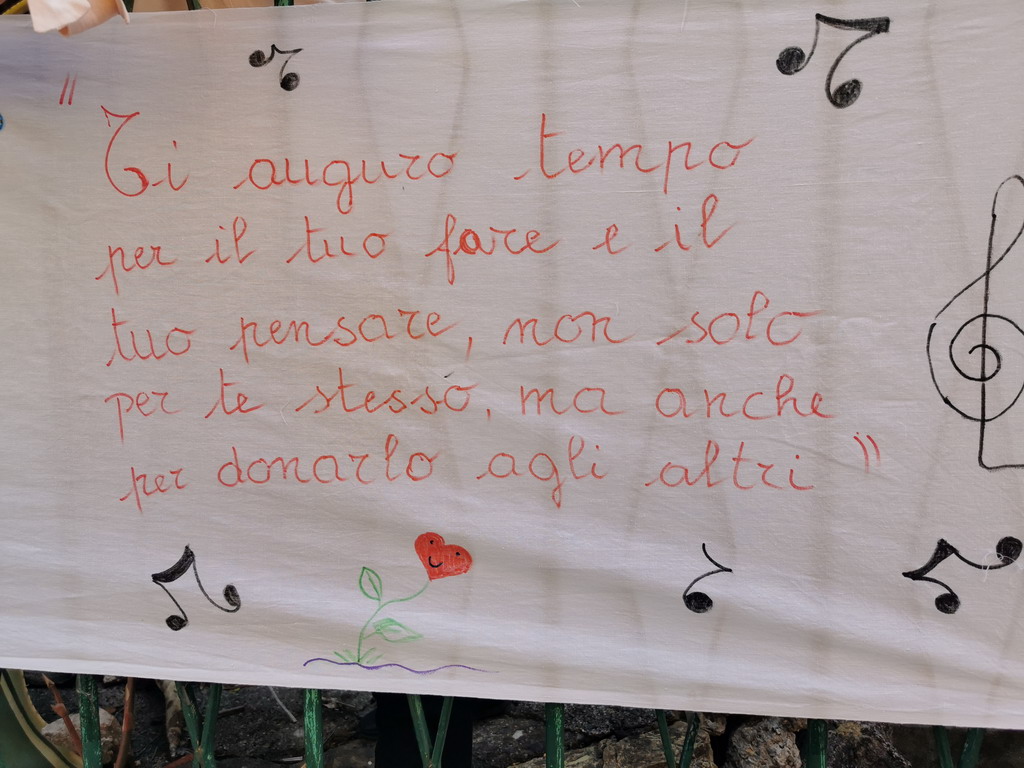 "Ti auguro tempo
per il tuo fare e il
tuo pensare, non solo
per te stesso, ma anche
per donarlo agli altri"